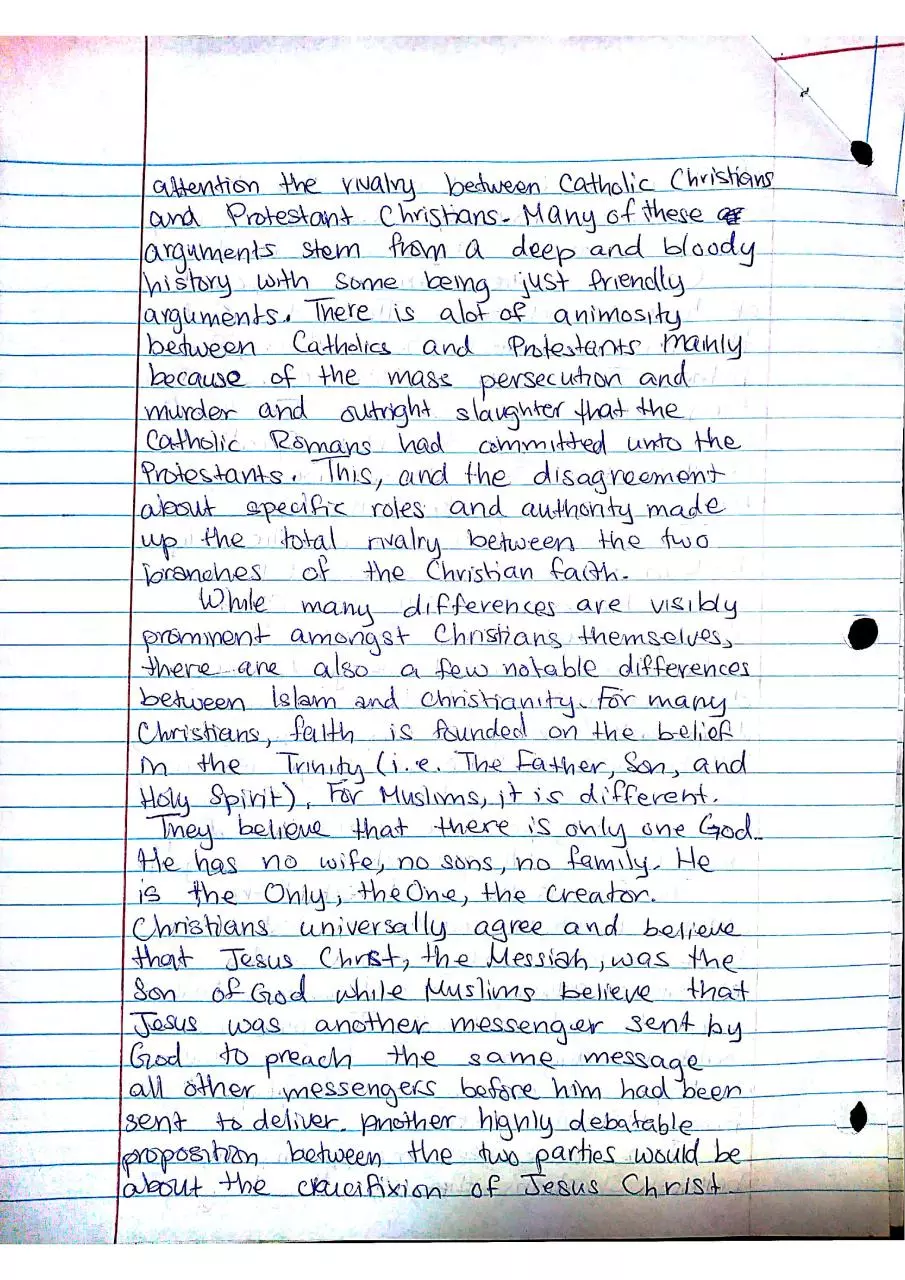 attention the rivalry between Catholic Christians
and Protestant Christians. Many of these
arguments stem from a deep and bloody
history with some being just friendly
arguments. There is alot of animosity
between Catholics and Protestants mainly
because of the mass persecution and
murder and outright slaughter that the
Catholic Romans had committed unto the
Protestants. This, and the disagreement
about specific roles and authority made
up the total rivalry between the two
branches of the Christian faith.
While many differences are visibly
prominent amongst Christians themselves,
there are also a few notable differences
between Islam and Christianity. For many
Christians, faith is founded on the belief
in the Trinity (i.e. The Father, Son, and
Holy Spirit), For Muslims, it is different.
They believe that there is only one God.
He has no wife, no sons, no family. He
is the Only, the One, the Creator.
Christians universally agree and believe
that Jesus Christ, the Messiah, was the
Son of God while Muslims believe that
Jesus was another messenger sent by
God to preach the same message
all other messengers before him had been
sent to deliver. Another highly debatable
proposition between the two parties would be
about the crucifixion of Jesus Christ.